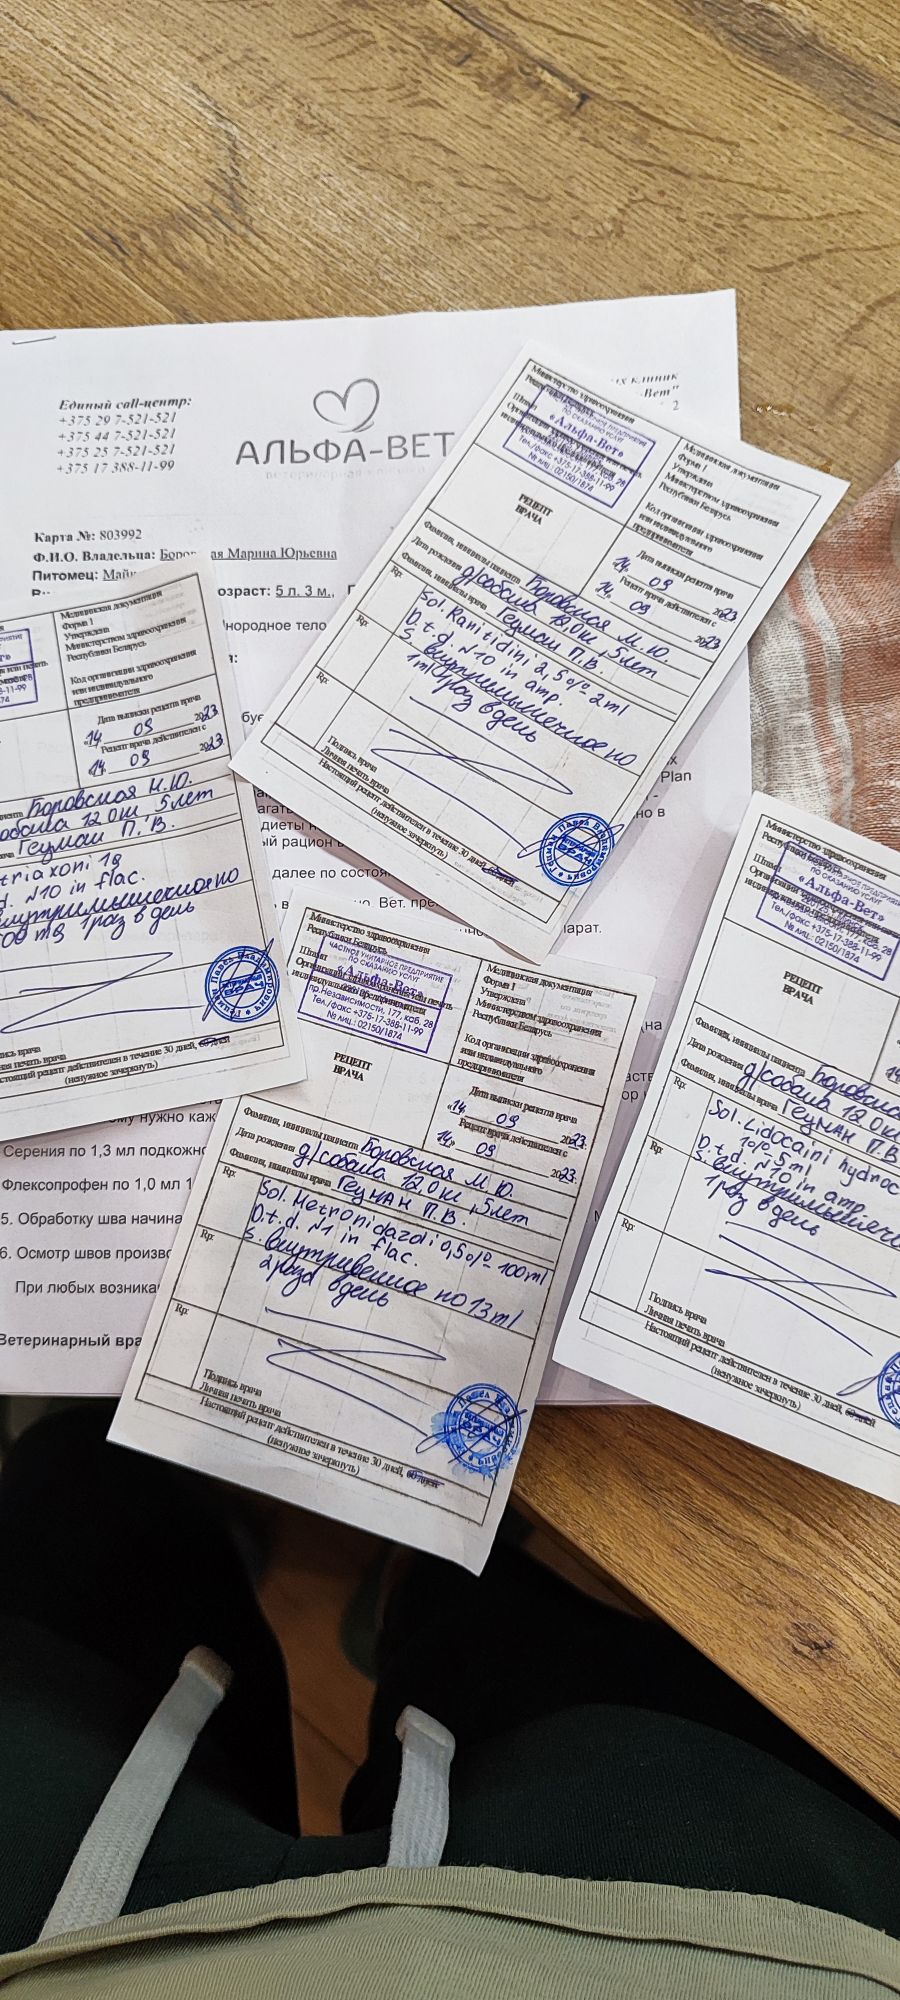 Единый call-центр:
+375 29 7-521-521
+375 44 7-521-521
+375 25 7-521-521
+375 17 388-11-99
АЛЬФА-ВЕТ
ветеринарная клиника
их клиник
-Вет"
2
Карта №: 803992
Ф.И.О. Владельца: Боров ая Марина Юрьевна
Питомец: Май
озраст: 5 л. 3 м.,
нородное тело
Plan
диеты
ый рацион в
далее по состоя
арат.
му нужно каж
Серения по 1,3 мл подкожно
Флексопрофен по 1,0 мл 1
5. Обработку шва начина
6. Осмотр швов произво
При любых возника
Ветеринарный вра
Министерство здравоохранения
Штамп
«Альфа-Вет»
Тел./факс +375-17-388-11-99
№ лиц.: 02150/1874
Медицинская документация
Форма 1
Утверждена
Министерством здравоохранения
Республики Беларусь
Код организации здравоохранения
или индивидуального
предпринимателя
РЕЦЕПТ
ВРАЧА
Дата выписки рецепта врача
«14 09 2023
Рецепт врача действителен с
14 09 2023
Фамилия, инициалы пациента Боровская М.Ю.
Дата рождения д/собака 12,0кг, 5лет
Фамилия, инициалы врача Гецман П.В.
Rp: Sol. Ranitidini 2,5% 2ml
D.t.d. №10 in amp.
S. внутримышечно по
1ml 1раз в день
Rp:
Подпись врача
Личная печать врача
Настоящий рецепт действителен в течение 30 дней, 60 дней
(ненужное зачеркнуть)
Медицинская документация
Форма 1
Утверждена
Министерством здравоохранения
Республики Беларусь
Код организации здравоохранения
или индивидуального
предпринимателя
Дата выписки рецепта врача
«14 09 2023
Рецепт врача действителен с
14 09 2023
циента Боровская М.Ю.
собака 12,0кг 5лет
ча Гецман П.В.
triaxoni 1g
t.d. №10 in flac.
внутримышечно по
00 mg 1раз в день
пись врача
астоящий рецепт действителен в течение 30 дней, 60 дней
(ненужное зачеркнуть)
Министерство здравоохранения
Республики Беларусь
Штамп
ЧАСТНОЕ УНИТАРНОЕ ПРЕДПРИЯТИЕ
ПО ОКАЗАНИЮ УСЛУГ
«Альфа-Вет»
пр.Независимости, 177, каб. 28
Тел./факс +375-17-388-11-99
№ лиц.: 02150/1874
Медицинская документация
Форма 1
Утверждена
Министерством здравоохранения
Республики Беларусь
Код организации здравоохранения
или индивидуального
предпринимателя
РЕЦЕПТ
ВРАЧА
Дата выписки рецепта врача
«14» 09 2023
Рецепт врача действителен с
14» 09 2023
Фамилия, инициалы пациента Боровская М.Ю.
Дата рождения д/собака 12,0кг, 5лет
Фамилия, инициалы врача Гецман П.В.
Rp: Sol. Metronidazoli 0,5% 100ml
D.t.d. №1 in flac.
S. внутривенно по 13ml
2раза в день
Rp:
Подпись врача
Личная печать врача
Настоящий рецепт действителен в течение 30 дней, 60 дней
(ненужное зачеркнуть)
Министерство здравоохранения
Штамп
ПО ОКАЗАНИЮ УСЛУГ
«Альфа-Вет»
Тел./факс +375-17-388-11
№ лиц.: 02150/1874
РЕЦЕПТ
ВРАЧА
Фамилия, инициалы пациента Боровска
Дата рождения д/собака 12,0кг
Фамилия, инициалы врача Гецман П.В
Rp: Sol. Lidocaini hydroc
1% 5ml
D.t.d. №10 in amp.
S. внутримышечн
1раз в день
Rp:
Подпись врача
Личная печать врача
Настоящий рецепт действителен в течение 30 дней, 60 дней
(ненужное зачеркнуть)